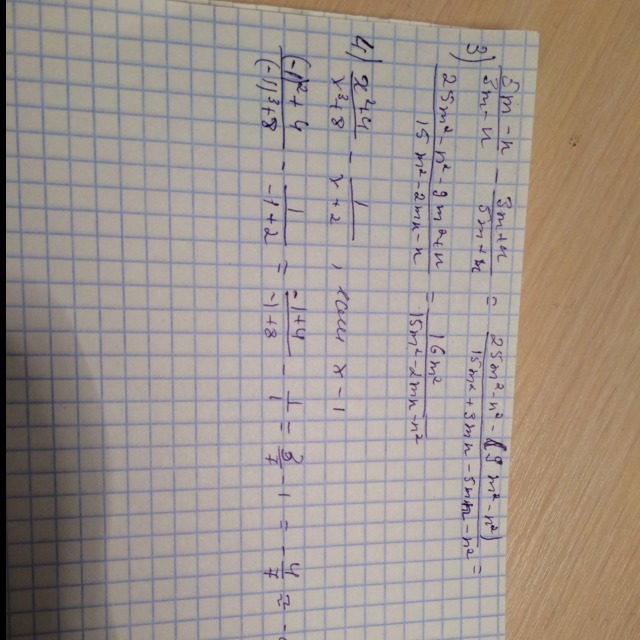 3) (5m - n)/(3m - n) - (3m + n)/(5m + n) = (25m² - n² - (9m² - n²))/(15m² + 3mn - 5mn - n²) =
(25m² - n² - 9m² + n)/(15m² - 2mn - n) = 16m²/(15m² - 2mn - n²)
4) (x² + 4)/(x³ + 8) - 1/(x + 2) , если x - 1
((-1)² + 4)/((-1)³ + 8) - 1/(-1 + 2) = (-1 + 4)/(-1 + 8) - 1/1 = 3/7 - 1 = - 4/7 =